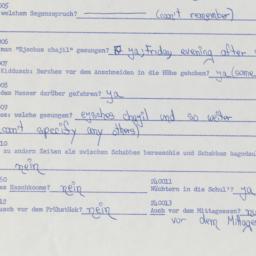 005
welchem Segensspruch? (can't remember)
006
man "Ejschus chajil" gesungen? ya, Friday evening after
007
Kiddusch: Barches vor dem anschneiden in die Höhe gehoben? ya (some
008
dem Messer darüber gefahren? ya
009
es: welche gesungen? eysches chajil und so weiter
can't specify any others)
010
zu andern Zeiten als zwischen Schabbes
nein
50
as Haschkoome? nein
240011
Wächtern in die Schul'? ya
12
usch vor dem Frühstück? nein
240013
Auch vor dem Mittagessen?
vor dem Mittage